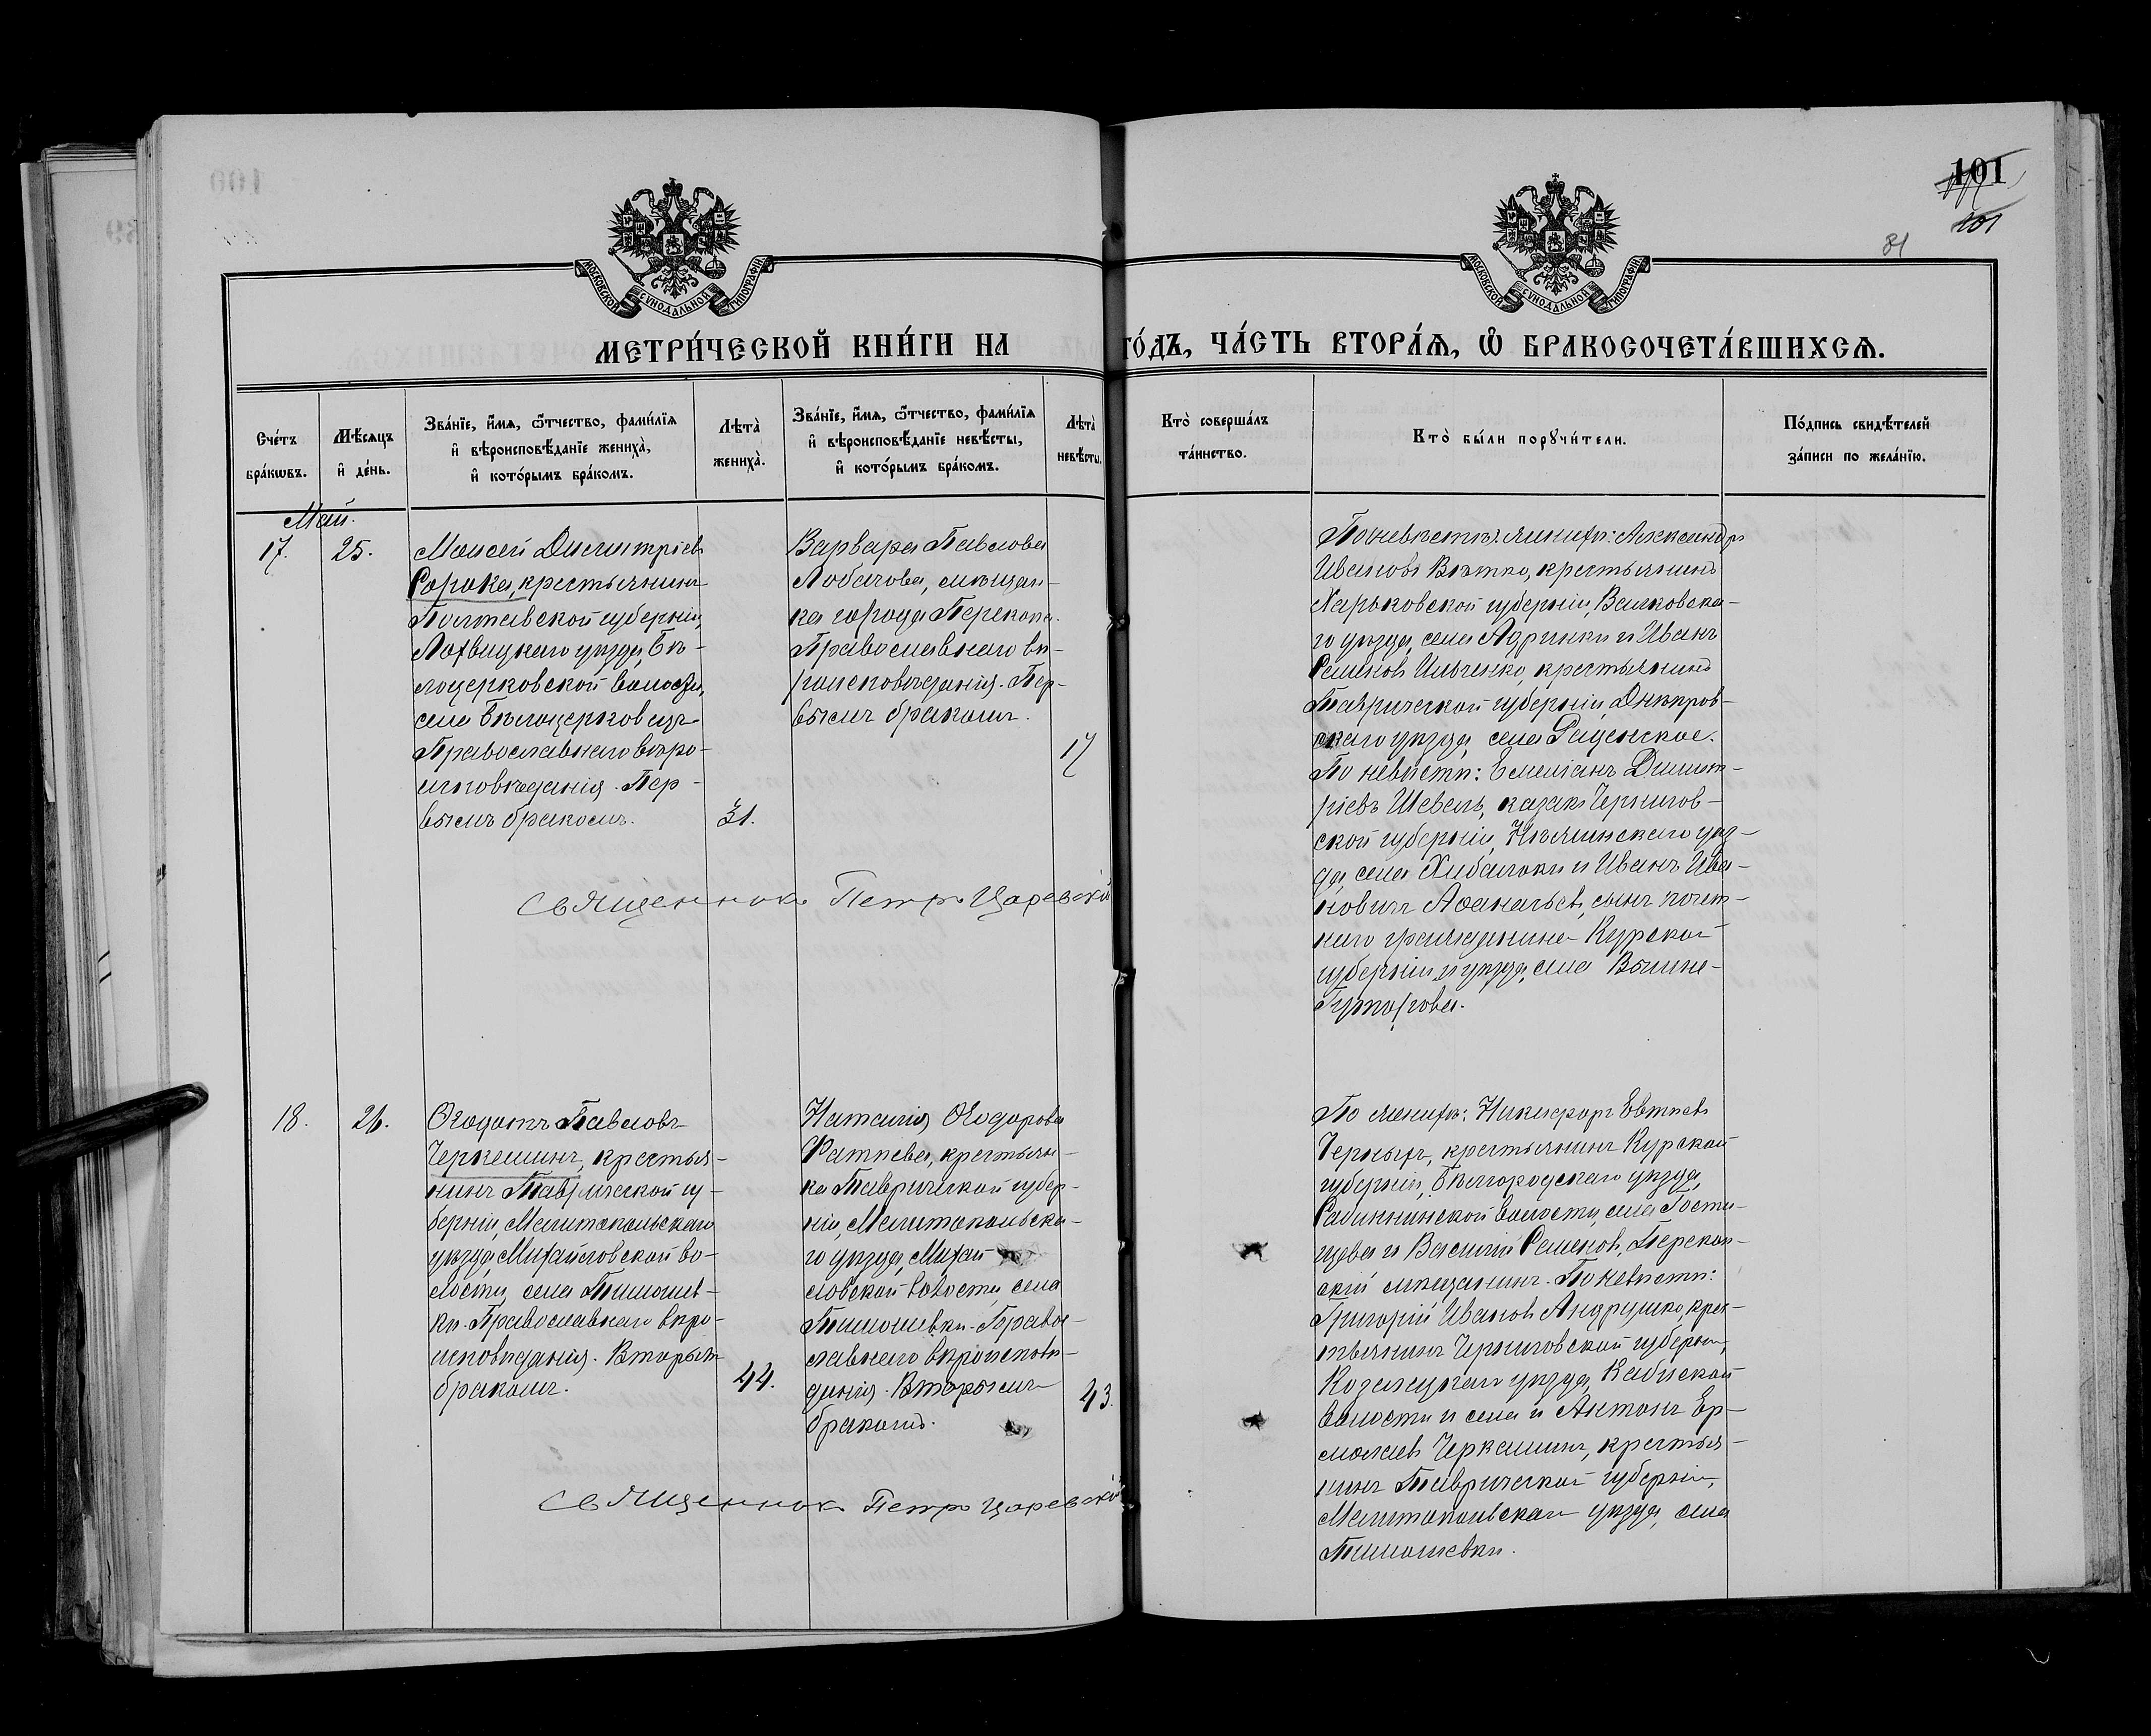 101
101
81
МОСКОВСКОЙ СѴНОДАЛЬНОЙ ТИПОГРАФІИ
МОСКОВСКОЙ СѴНОДАЛЬНОЙ ТИПОГРАФІИ
МЕТРИ́ЧЕСКОЙ КНИ́ГИ НА ГО́ДЪ, ЧА́СТЬ ВТОРА́Ѧ, Ѿ БРАКОСОЧЕТА́ВШИХСѦ.
Сче́тъ
бра́кѡвъ.
Мѣ́сяцъ
и҆ де́нь.
Зва́нїе, и҆́мѧ, ѻ҆́тчество, фами́лїѧ
и҆ вѣроисповѣ́данїе жениха̀,
и҆ кото́рымъ бра́комъ.
Лѣта̀
жениха̀.
Зва́нїе, и҆́мѧ, ѻ҆́тчество, фами́лїѧ
и҆ вѣроисповѣ́данїе невѣ́сты,
и҆ кото́рымъ бра́комъ.
Лѣта̀
невѣ́сты.
Кто̀ соверша́лъ
та́инство.
Кто̀ бы́ли порꙋчи́тели.
По́дпись свидѣ́телей
за́писи по жела́нїю.
Май.
17.
25.
Моисей Димитріевъ
Сорока, крестьянинъ
Полтавской губерніи,
Лохвицкаго уѣзда, Бѣ-
лоцерковской волости,
села Бѣлоцерковецъ
Православнаго вѣро-
исповѣданія. Пер-
вымъ бракомъ.
31.
Варвара Павлова
Лобачова, мѣщан-
ка города Перекопа.
Православнаго вѣ-
роисповѣданія. Пер-
вымъ бракомъ.
17
По женихѣ: Александръ
Ивановъ Вѣтко, крестьянинъ
Харьковской губерніи, Валковска-
го уѣзда, села Адринки и Иванъ
Семеновъ Ильченко, крестьянинъ
Таврической губерніи, Днѣпров-
скаго уѣзда, села
По невѣстѣ: Емеліанъ Димит-
ріевъ Шевель, казакъ Чернигов-
ской губерніи, Нѣжинскаго уѣз-
да, села Хибаловки и Иванъ Ива-
новичъ Аѳанасьевъ, сынъ почет-
наго гражданина Курской
губерніи и уѣзда, села Вышне-
Гуторова.
Священникъ Петръ Царевскій
18.
26.
Ѳеодотъ Павловъ
Черкешинъ, крестья-
нинъ Таврической гу-
берніи, Мелитопольскаго
уѣзда, Михайловской во-
лости, села Тимошев-
ки. Православнаго вѣро-
исповѣданія. Вторымъ
бракомъ.
44.
Наталія Ѳеодорова
Фатнева, крестьян-
ка Таврической губер-
ніи, Мелитопольска-
го уѣзда, Михай-
ловской волости, села
Тимошевки. Право-
славнаго вѣроисповѣ-
данія. Вторымъ
бракомъ.
43.
По женихѣ: Никифоръ Евтіевъ
Черныхъ, крестьянинъ Курской
губерніи, Бѣлгородскаго уѣзда,
волости, села Гости-
щева и Василій Семеновъ, Перекоп-
скій мѣщанинъ. По невѣстѣ:
Григорій Ивановъ Андрушко, крес-
тьянинъ Черниговской губерніи,
Козелецкаго уѣзда, Кабиской
волости и села и Антонъ Ер-
молаевъ Черкашинъ, крестья-
нинъ Таврической губерніи,
Мелитопольскаго уѣзда, села
Тимошевки.
Священникъ Петръ Царевскій